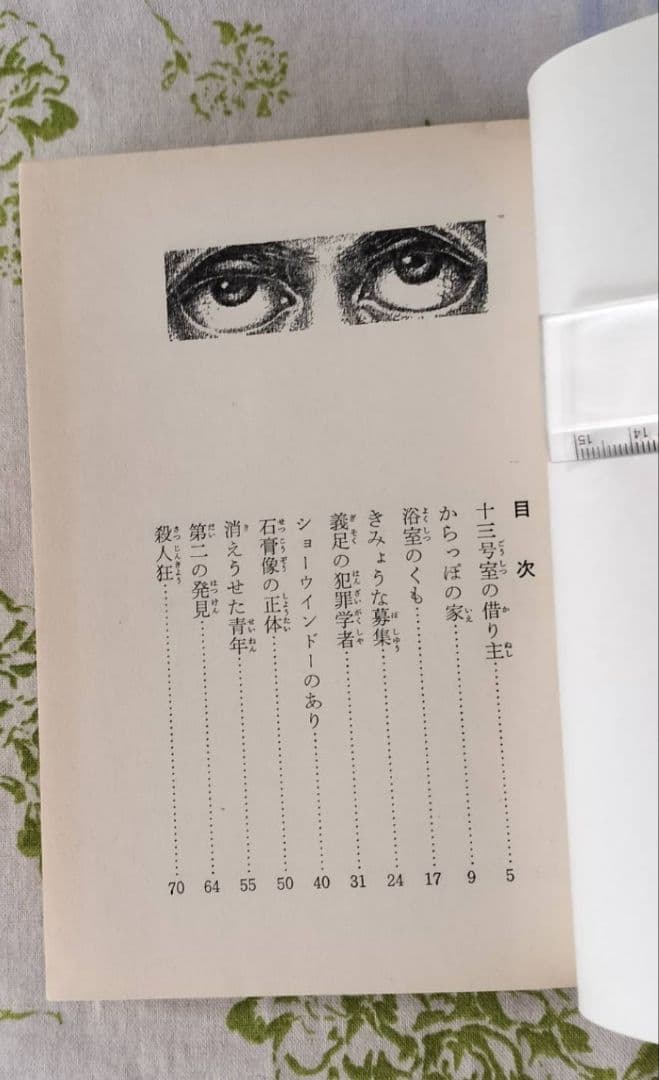 目次
十三号室の借り主 5
からっぽの家 9
浴室のくも 17
きみょうな募集 24
義足の犯罪学者 31
ショーウインドーのあり 40
石膏像の正体 50
消えうせた青年 55
第二の発見 64
殺人狂 70
15 14